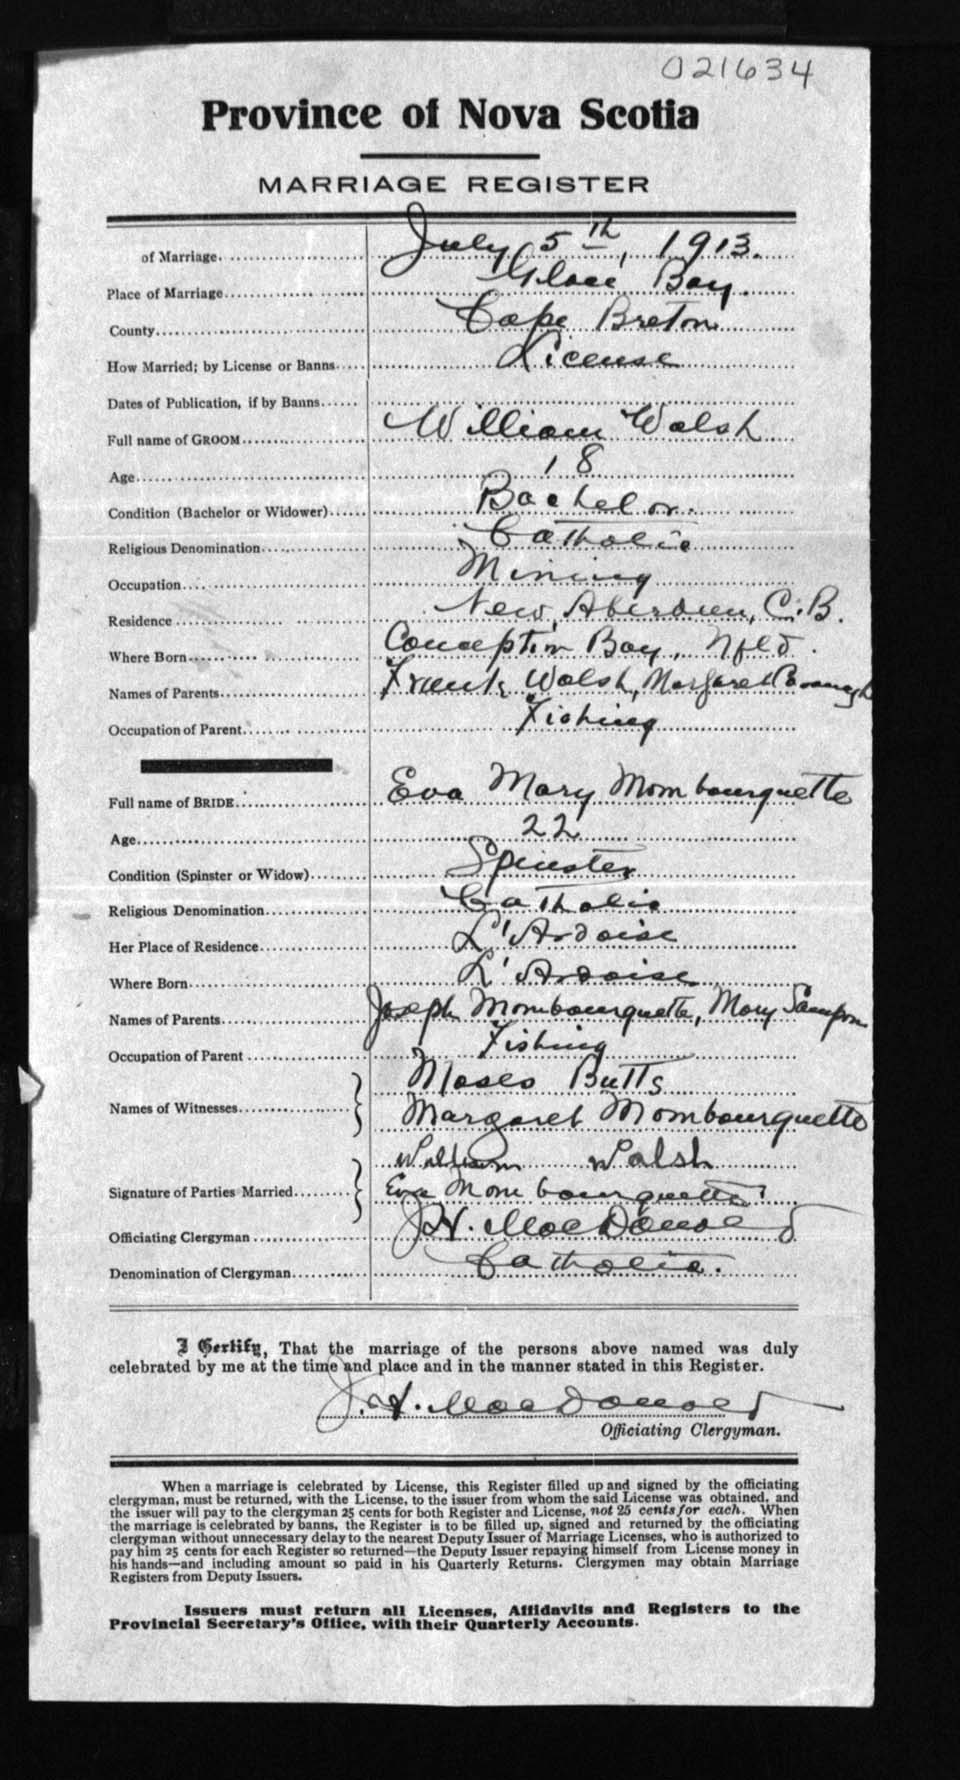 021634
Province of Nova Scotia
MARRIAGE REGISTER
of Marriage July 5th, 1913.
Place of Marriage Glace Bay.
County Cape Breton
How Married; by License or Banns License
Dates of Publication, if by Banns
Full name of GROOM William Walsh
Age 18
Condition (Bachelor or Widower) Bachelor.
Religious Denomination Catholic
Occupation Mining
Residence New Aberdeen, C.B.
Where Born Conception Bay, Nfld.
Names of Parents Frank Walsh, Margaret
Occupation of Parent Fishing
Full name of BRIDE Eva Mary Mombourquette
Age 22
Condition (Spinster or Widow) Spinster
Religious Denomination Catholic
Her Place of Residence L'Ardoise
Where Born L'Ardoise
Names of Parents Joseph Mombourquette, Mary Sampson
Occupation of Parent Fishing
Names of Witnesses Moses Butts
Margaret Mombourquette
William Walsh
Signature of Parties Married Eva Mombourquette
Officiating Clergyman J.H. MacDonald
Denomination of Clergyman Catholic.
I Certify, That the marriage of the persons above named was duly
celebrated by me at the time and place and in the manner stated in this Register.
J.H. MacDonald
Officiating Clergyman.
When a marriage is celebrated by License, this Register filled up and signed by the officiating
clergyman, must be returned, with the License, to the issuer from whom the said License was obtained, and
the issuer will pay to the clergyman 25 cents for both Register and License, not 25 cents for each. When
the marriage is celebrated by banns, the Register is to be filled up, signed and returned by the officiating
clergyman without unnecessary delay to the nearest Deputy Issuer of Marriage Licenses, who is authorized to
pay him 25 cents for each Register so returned—the Deputy Issuer repaying himself from License money in
his hands—and including amount so paid in his Quarterly Returns. Clergymen may obtain Marriage
Registers from Deputy Issuers.
Issuers must return all Licenses, Affidavits and Registers to the
Provincial Secretary's Office, with their Quarterly Accounts.